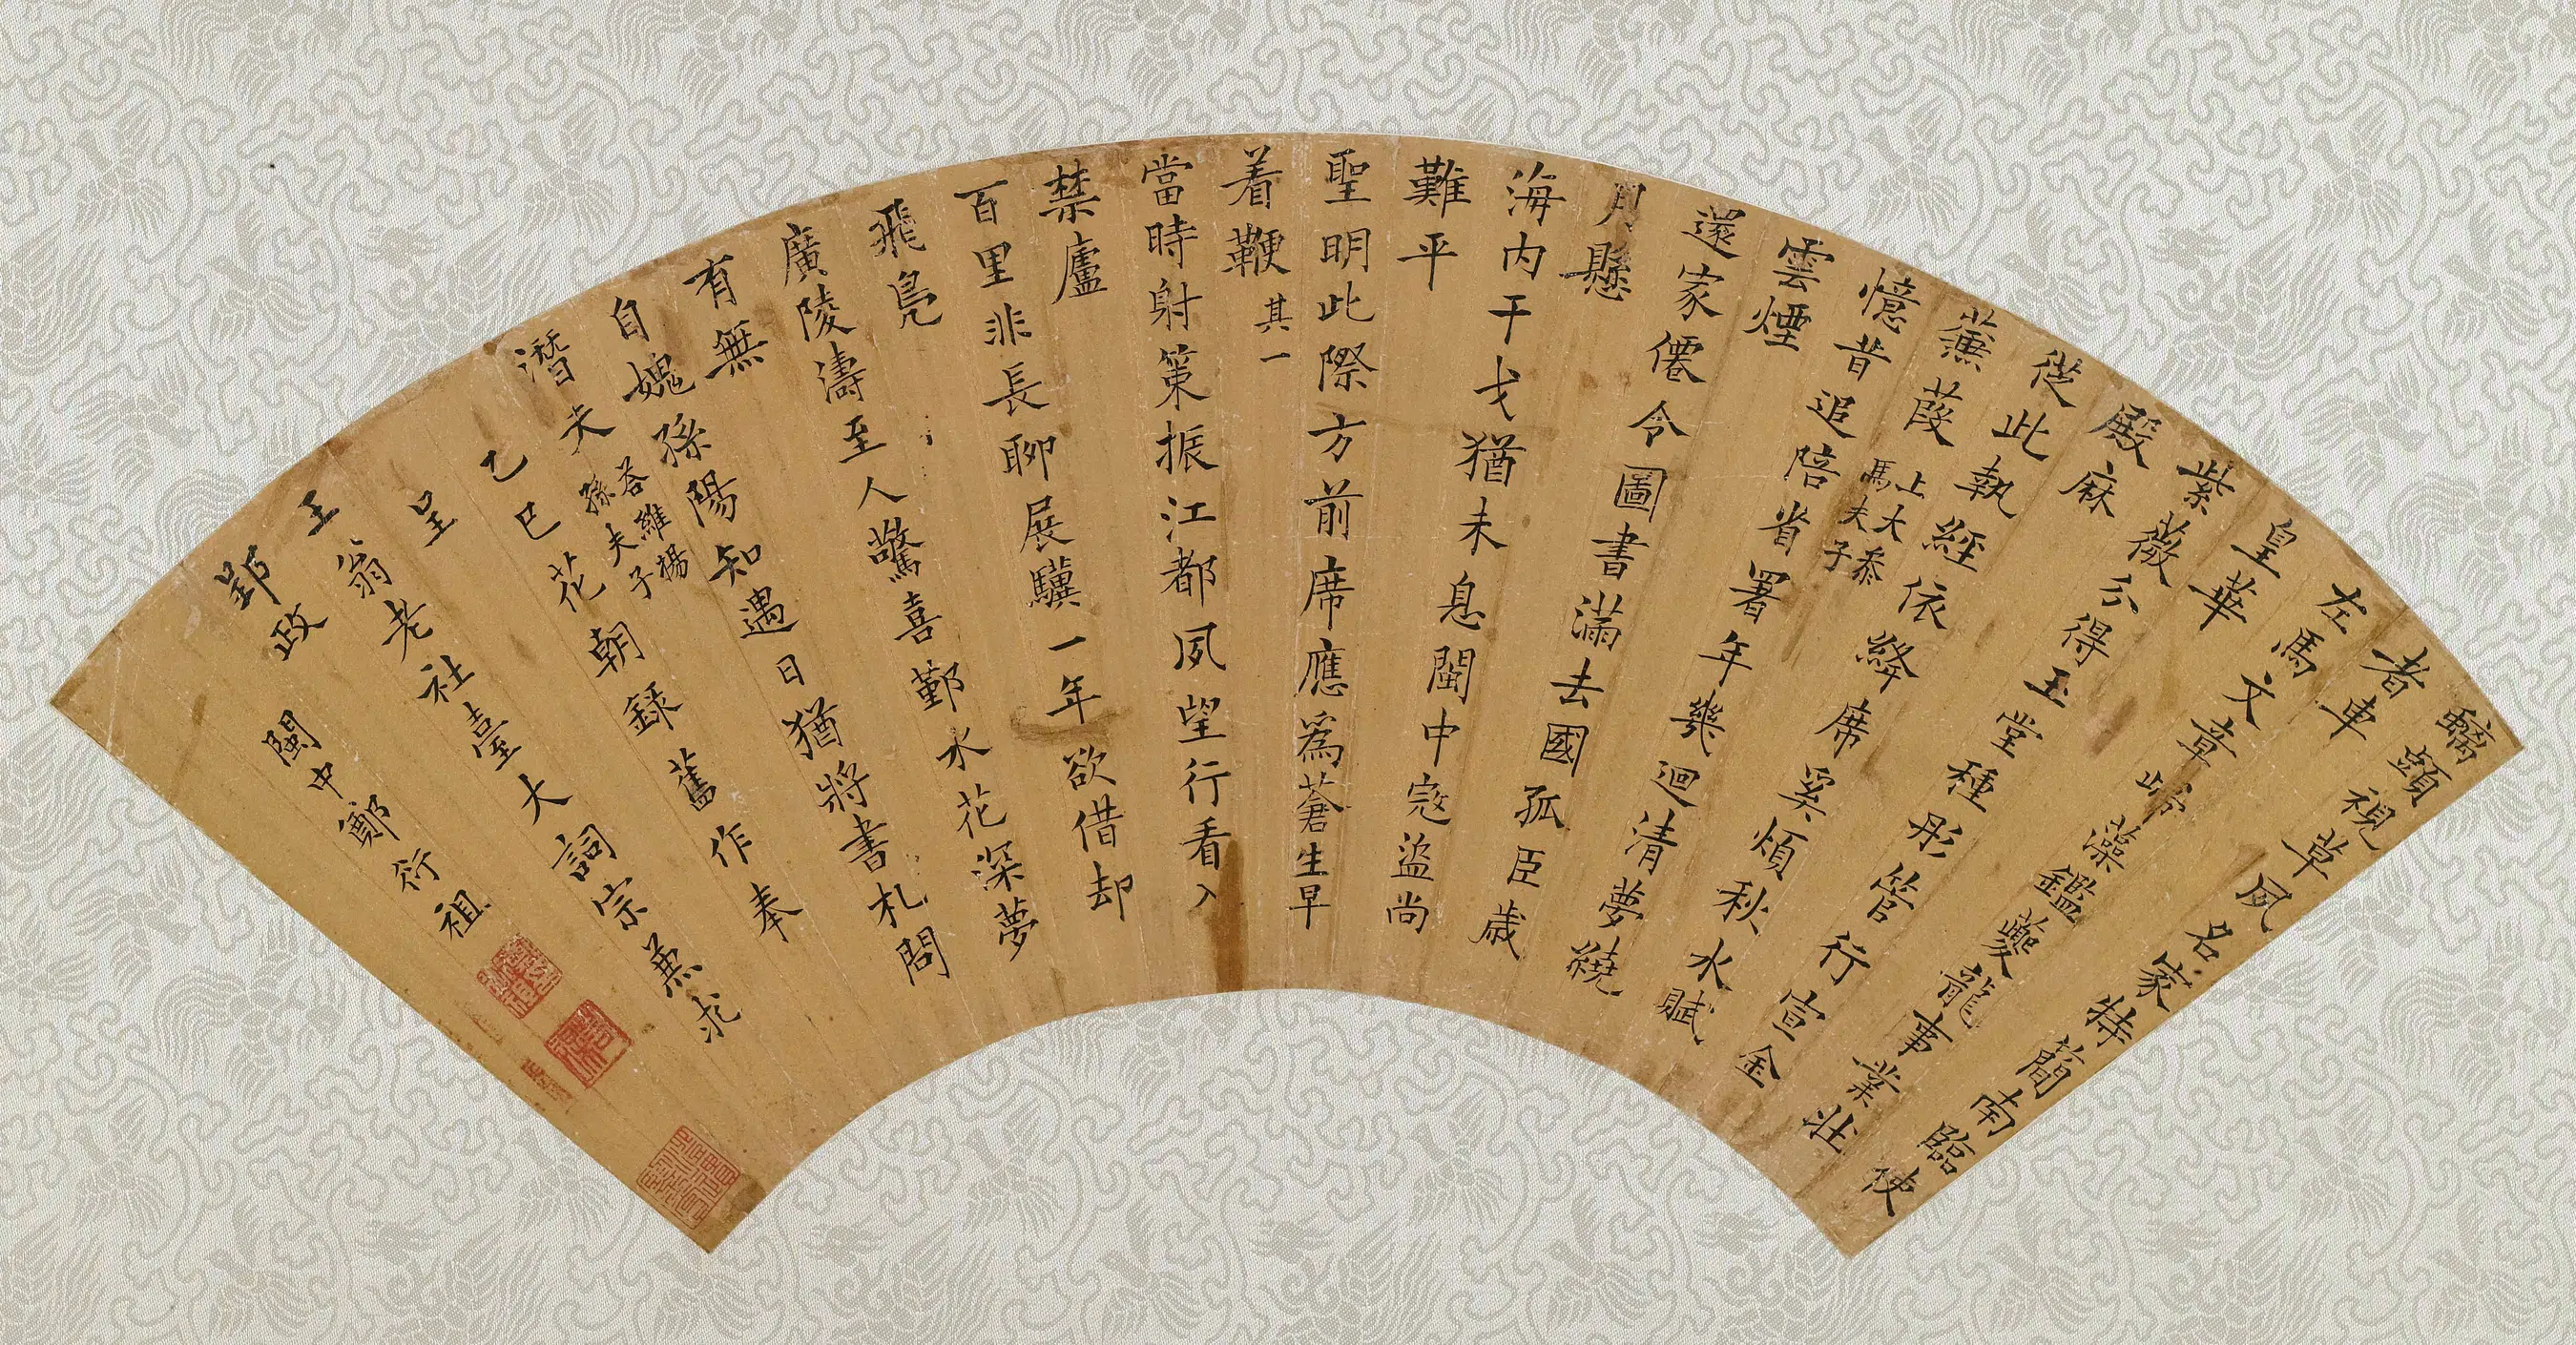 螭頭視草夙名家特簡南臨使
者車
左馬文章歸藻鑑夔龍事業壯
皇華
紫薇分得玉堂種彤管行宣金
殿麻
從此執經依絳席奚煩秋水賦
蒹葭
上大泰
馬夫子
憶昔追陪省署年幾迴清夢繞
雲煙
還家僊令圖書滿去國孤臣歲
月懸
海內干戈猶未息閩中寇盜尚
難平
聖明此際方前席應為蒼生早
着鞭 其一
當時射策振江都夙望行看入
禁廬
百里非長聊展驥一年欲借却
飛鳧
廣陵濤至人驚喜鄞水花深夢
有無
自媿孫陽知遇日猶將書札問
潛夫
答維揚
孫夫子
乙巳花朝錄舊作奉
呈
王翁老社臺大詞宗兼求
郢政 閩中鄭衍祖